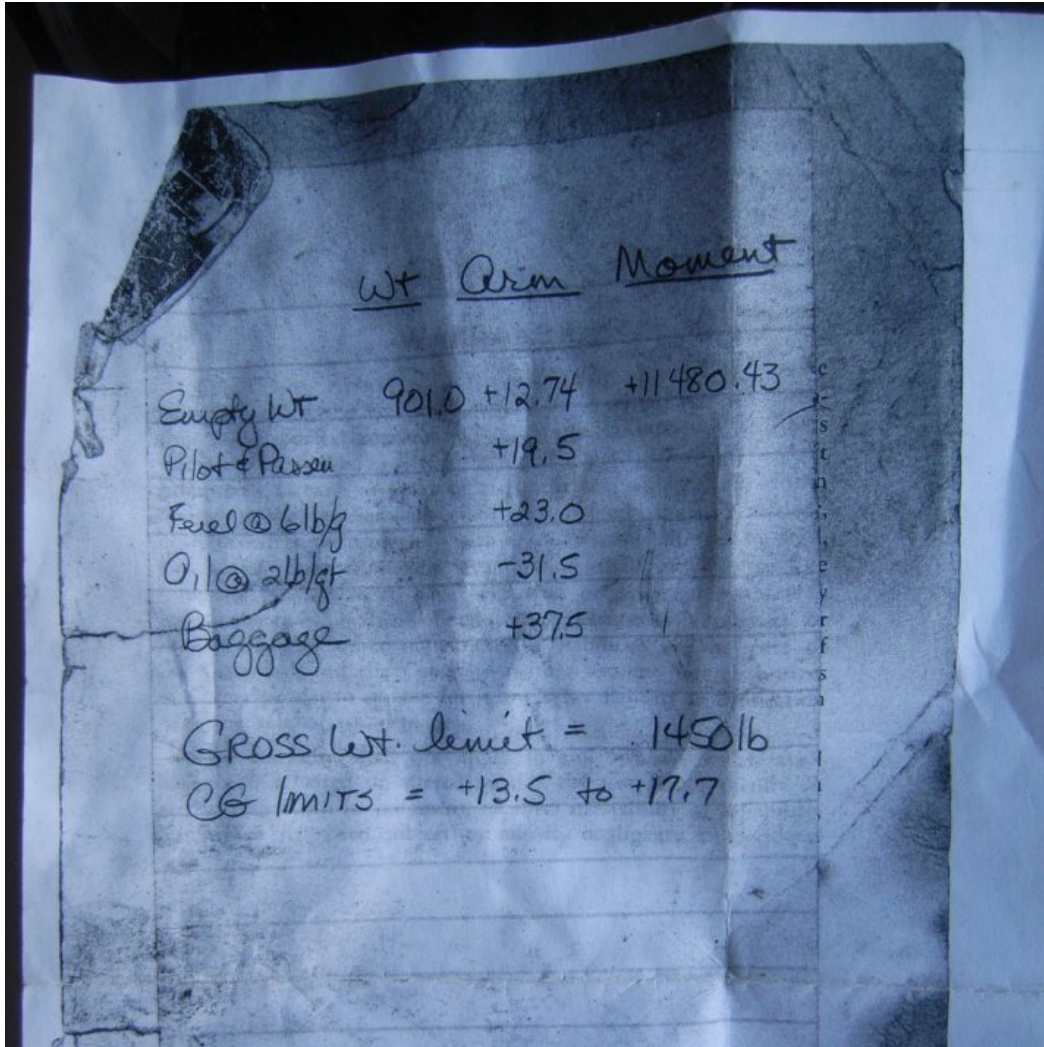 Wt Arm Moment
Empty Wt 901.0 +12.74 +11480.43
Pilot & Passen +19.5
Fuel @ 6lb/g +23.0
Oil @ 2lb/qt -31.5
Baggage +37.5
GROSS Wt. limit = 1450lb
CG limits = +13.5 to +17.7